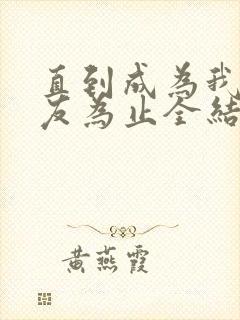 直到成為我
友為止全結
黃燕霞